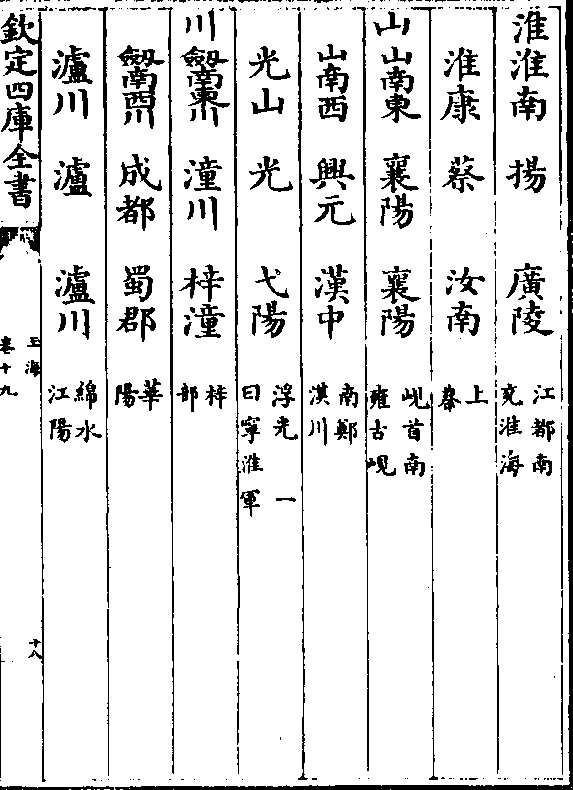 淮淮南 揚 廣陵 江都南兖淮海
淮康 蔡 汝南 上蔡
山山南東 襄陽 襄陽 峴首南雍古峴
山南西 興元 漢中 南鄭漢川
光山 光 弋陽 浮光一曰寧淮軍
川劒南東川 潼川 梓潼 梓部
劒南西川 成都 蜀郡 華陽
瀘川 瀘 瀘川 綿水江陽
欽定四庫全書 玉海卷十九 十八